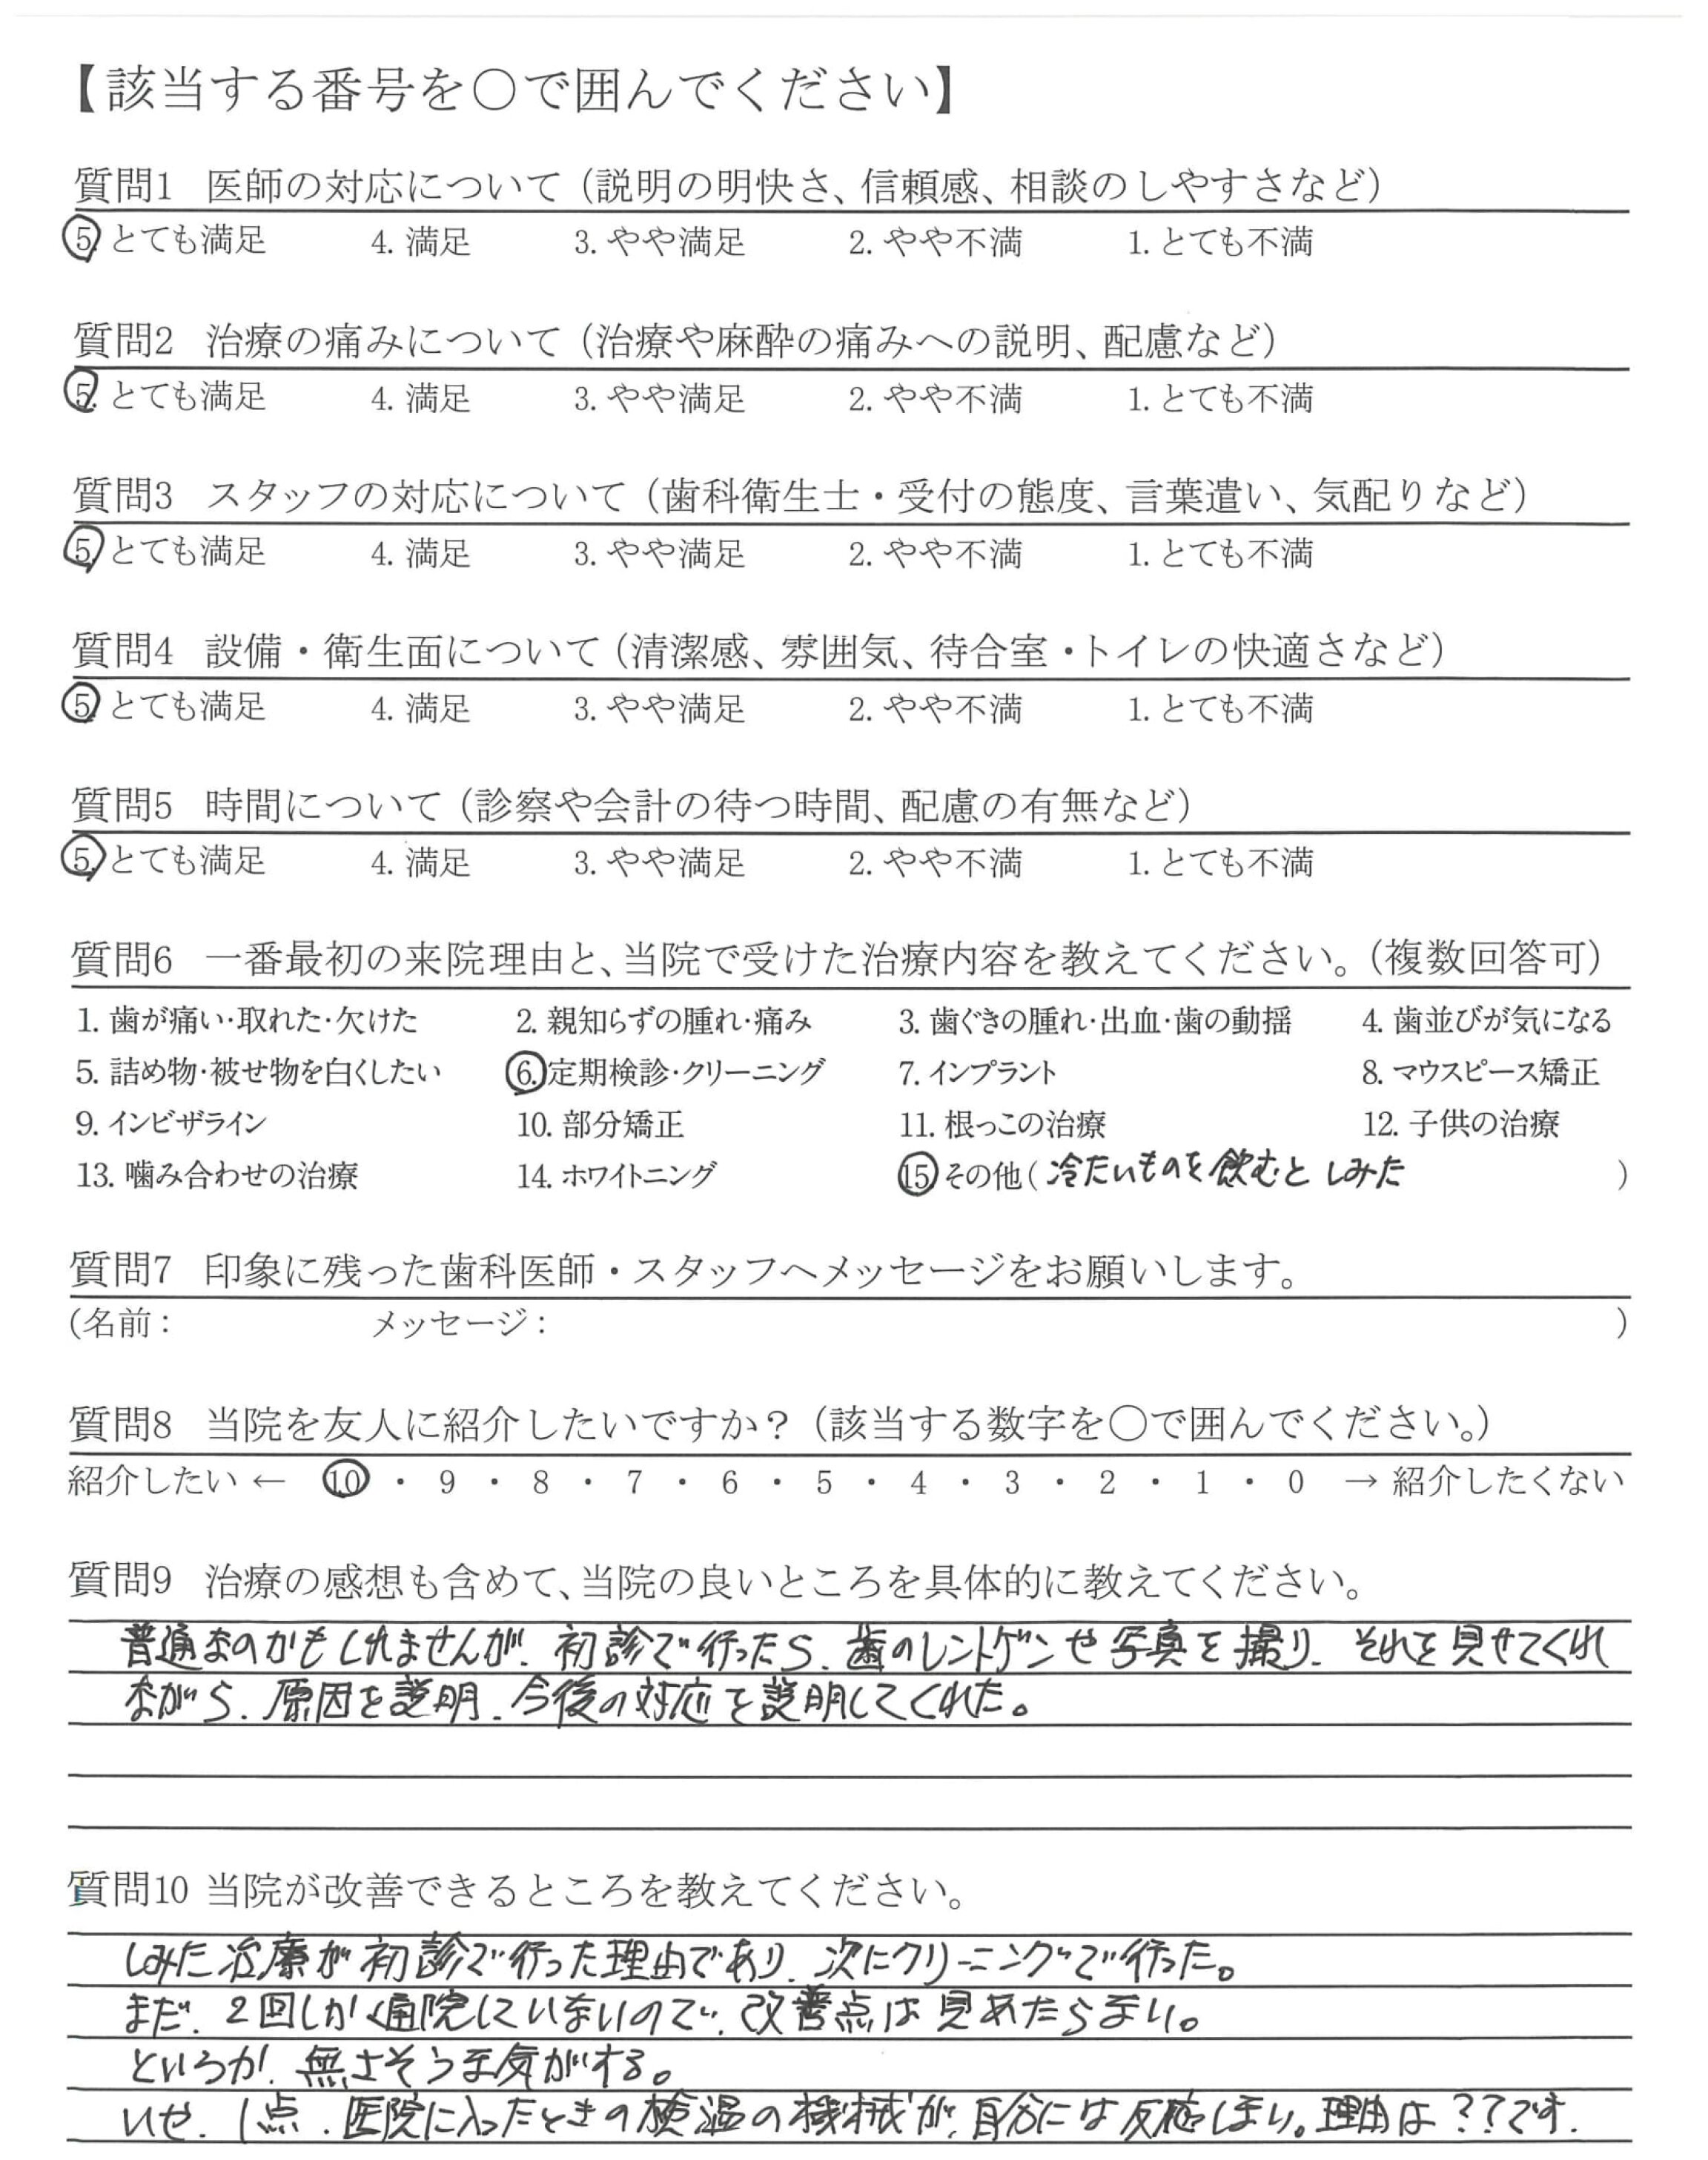 【該当する番号を〇で囲んでください】
質問1 医師の対応について（説明の明快さ、信頼感、相談のしやすさなど）
5. とても満足 4. 満足 3. やや満足 2. やや不満 1. とても不満
質問2 治療の痛みについて（治療や麻酔の痛みへの説明、配慮など）
5. とても満足 4. 満足 3. やや満足 2. やや不満 1. とても不満
質問3 スタッフの対応について（歯科衛生士・受付の態度、言葉遣い、気配りなど）
5. とても満足 4. 満足 3. やや満足 2. やや不満 1. とても不満
質問4 設備・衛生面について（清潔感、雰囲気、待合室・トイレの快適さなど）
5. とても満足 4. 満足 3. やや満足 2. やや不満 1. とても不満
質問5 時間について（診察や会計の待つ時間、配慮の有無など）
5. とても満足 4. 満足 3. やや満足 2. やや不満 1. とても不満
質問6 一番最初の来院理由と、当院で受けた治療内容を教えてください。（複数回答可）
1. 歯が痛い・取れた・欠けた 2. 親知らずの腫れ・痛み 3. 歯ぐきの腫れ・出血・歯の動揺 4. 歯並びが気になる
5. 詰め物・被せ物を白くしたい 6. 定期検診・クリーニング 7. インプラント 8. マウスピース矯正
9. インビザライン 10. 部分矯正 11. 根っこの治療 12. 子供の治療
13. 噛み合わせの治療 14. ホワイトニング 15. その他（冷たいものを飲むと しみた）
質問7 印象に残った歯科医師・スタッフへメッセージをお願いします。
(名前： メッセージ： )
質問8 当院を友人に紹介したいですか？（該当する数字を〇で囲んでください。）
紹介したい ← 10 ・ 9 ・ 8 ・ 7 ・ 6 ・ 5 ・ 4 ・ 3 ・ 2 ・ 1 ・ 0 → 紹介したくない
質問9 治療の感想も含めて、当院の良いところを具体的に教えてください。
普通なのかもしれませんが、初診で行ったら、歯のレントゲンや写真を撮り、それを見せてくれ
ながら、原因を説明、今後の対応を説明してくれた。
質問10 当院が改善できるところを教えてください。
しみた治療が初診で行った理由であり、次にクリーニングで行った。
まだ、2回しか通院していないので、改善点は見あたらない。
というか、無さそうな気がする。
いや、1点、医院に入ったときの検温の機械が、自分には反応しない。理由は??です.